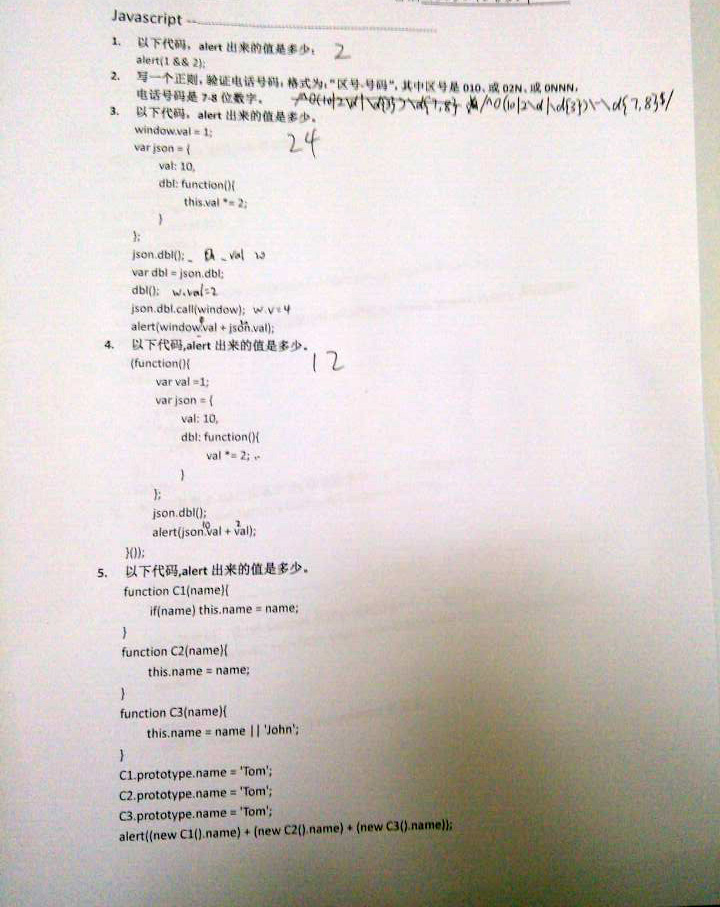 Javascript
1. 以下代码，alert 出来的值是多少： 2
alert(1 && 2);
2. 写一个正则，验证电话号码，格式为："区号-号码"，其中区号是 010、或 02N、或 0NNN，
电话号码是 7-8 位数字。 /^0(10|2\d|\d{3})\-\d{7,8}$/
3. 以下代码，alert 出来的值是多少。
window.val = 1; 24
var json = {
val: 10,
dbl: function(){
this.val *= 2;
}
};
json.dbl(); val 20
var dbl = json.dbl;
dbl(); w.val=2
json.dbl.call(window); w.v=4
alert(window.val + json.val);
4. 以下代码,alert 出来的值是多少。
(function(){ 12
var val =1;
var json = {
val: 10,
dbl: function(){
val *= 2;
}
};
json.dbl();
10 2
alert(json.val + val);
}());
5. 以下代码,alert 出来的值是多少。
function C1(name){
if(name) this.name = name;
}
function C2(name){
this.name = name;
}
function C3(name){
this.name = name || 'John';
}
C1.prototype.name = 'Tom';
C2.prototype.name = 'Tom';
C3.prototype.name = 'Tom';
alert((new C1().name) + (new C2().name) + (new C3().name));